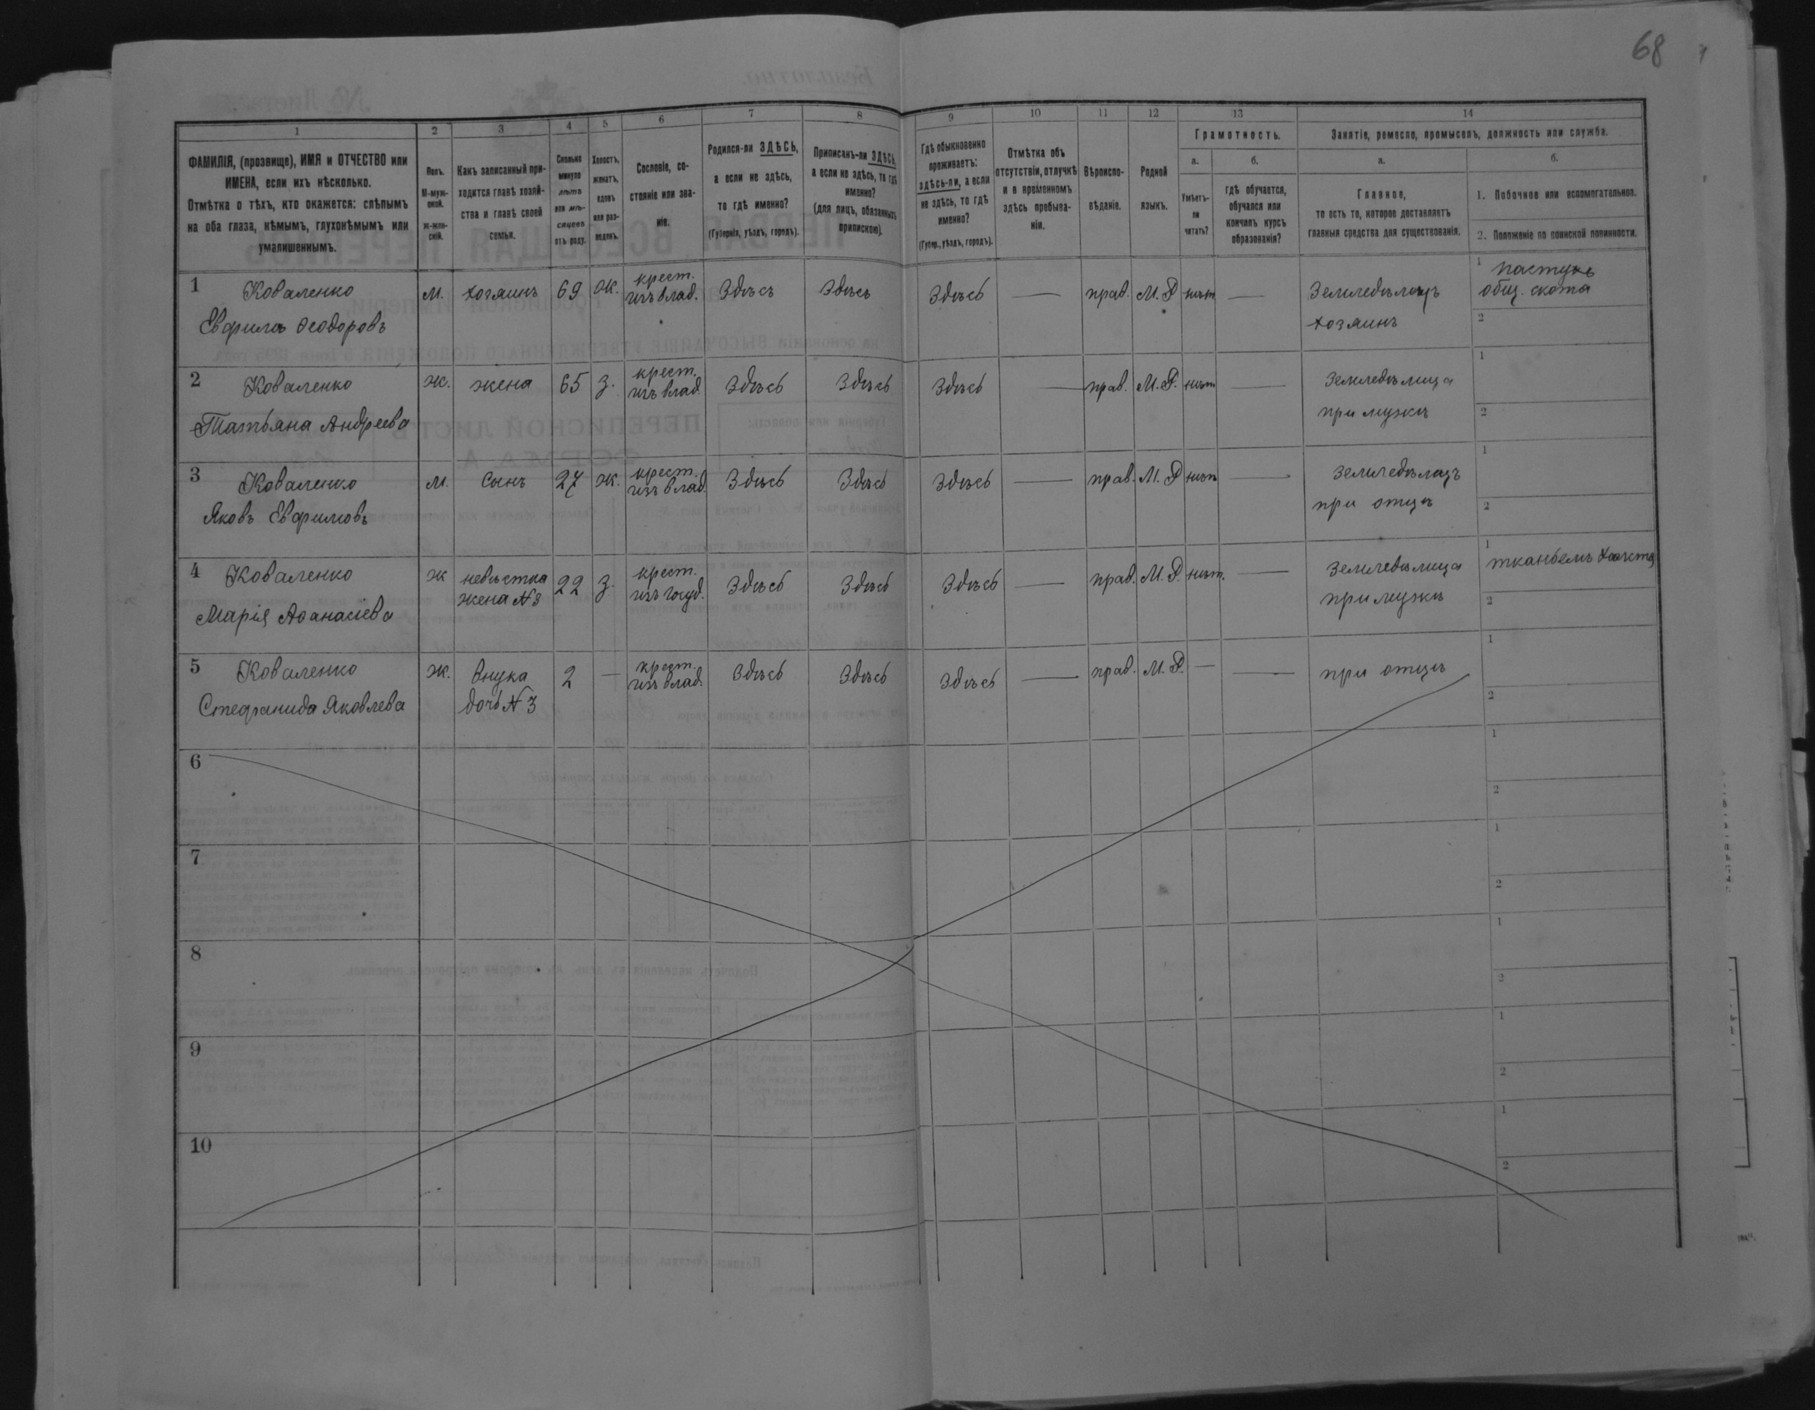 68
1 2 3 4 5 6 7 8 9 10 11 12 13 14
ФАМИЛІЯ, (прозвище), ИМЯ и ОТЧЕСТВО или
ИМЕНА, если ихъ нѣсколько.
Отмѣтка о тѣхъ, кто окажется: слѣпымъ
на оба глаза, нѣмымъ, глухонѣмымъ или
умалишеннымъ.
Полъ.
М-муж-
ской.
Ж-жен-
скій.
Какъ записанный при-
ходится главѣ хозяй-
ства и главѣ своей
семьи.
Сколько
минуло
лѣтъ
или мѣ-
сяцевъ
отъ роду.
Холостъ,
женатъ,
вдовъ
или раз-
веденъ.
Сословіе, со-
стояніе или зва-
ніе.
Родился-ли ЗДѢСЬ,
а если не здѣсь,
то гдѣ именно?
(Губернія, уѣздъ, городъ).
Приписанъ-ли ЗДѢСЬ,
а если не здѣсь, то гдѣ
именно?
(для лицъ, обязанныхъ
припискою).
Гдѣ обыкновенно
проживаетъ:
здѣсь-ли, а если
не здѣсь, то гдѣ
именно?
(Губер., уѣздъ, городъ).
Отмѣтка объ
отсутствіи, отлучкѣ
и о временномъ
здѣсь пребыва-
ніи.
Вѣроиспо-
вѣданіе.
Родной
языкъ.
Грамотность.
а.
Умѣетъ-
ли
читать?
б.
гдѣ обучается,
обучался или
кончилъ курсъ
образованія?
Занятіе, ремесло, промыселъ, должность или служба.
а.
Главное,
то есть то, которое доставляетъ
главныя средства для существованія.
б.
1. Побочное или вспомогательное.
2. Положеніе по воинской повинности.
1 Коваленко Евфимъ Ѳеодоровъ м. хозяинъ 69 ж. крест. изъ влад. Здѣсь Здѣсь Здѣсь — прав. М. Р. нѣтъ — Земледѣлецъ хозяинъ 1 пастухъ общ. скота 2
2 Коваленко Татьяна Андреева ж. жена 65 з. крест. изъ влад. Здѣсь Здѣсь Здѣсь — прав. М. Р. нѣтъ — Земледѣлица при мужѣ 1 2
3 Коваленко Яковъ Евфимовъ м. сынъ 27 ж. крест. изъ влад. Здѣсь Здѣсь Здѣсь — прав. М. Р. нѣтъ — земледѣлецъ при отцѣ 1 2
4 Коваленко Марія Аѳанасіева ж невѣстка жена № 3 22 з. крест. изъ госуд. Здѣсь Здѣсь Здѣсь — прав. М. Р. нѣт. — Земледѣлица при мужѣ 1 тканьемъ холста 2
5 Коваленко Стефанида Яковлева ж. внука дочь № 3 2 — крест. изъ влад. Здѣсь Здѣсь Здѣсь — прав. М. Р. — — при отцѣ 1 2
6 1 2
7 1 2
8 1 2
9 1 2
10 1 2